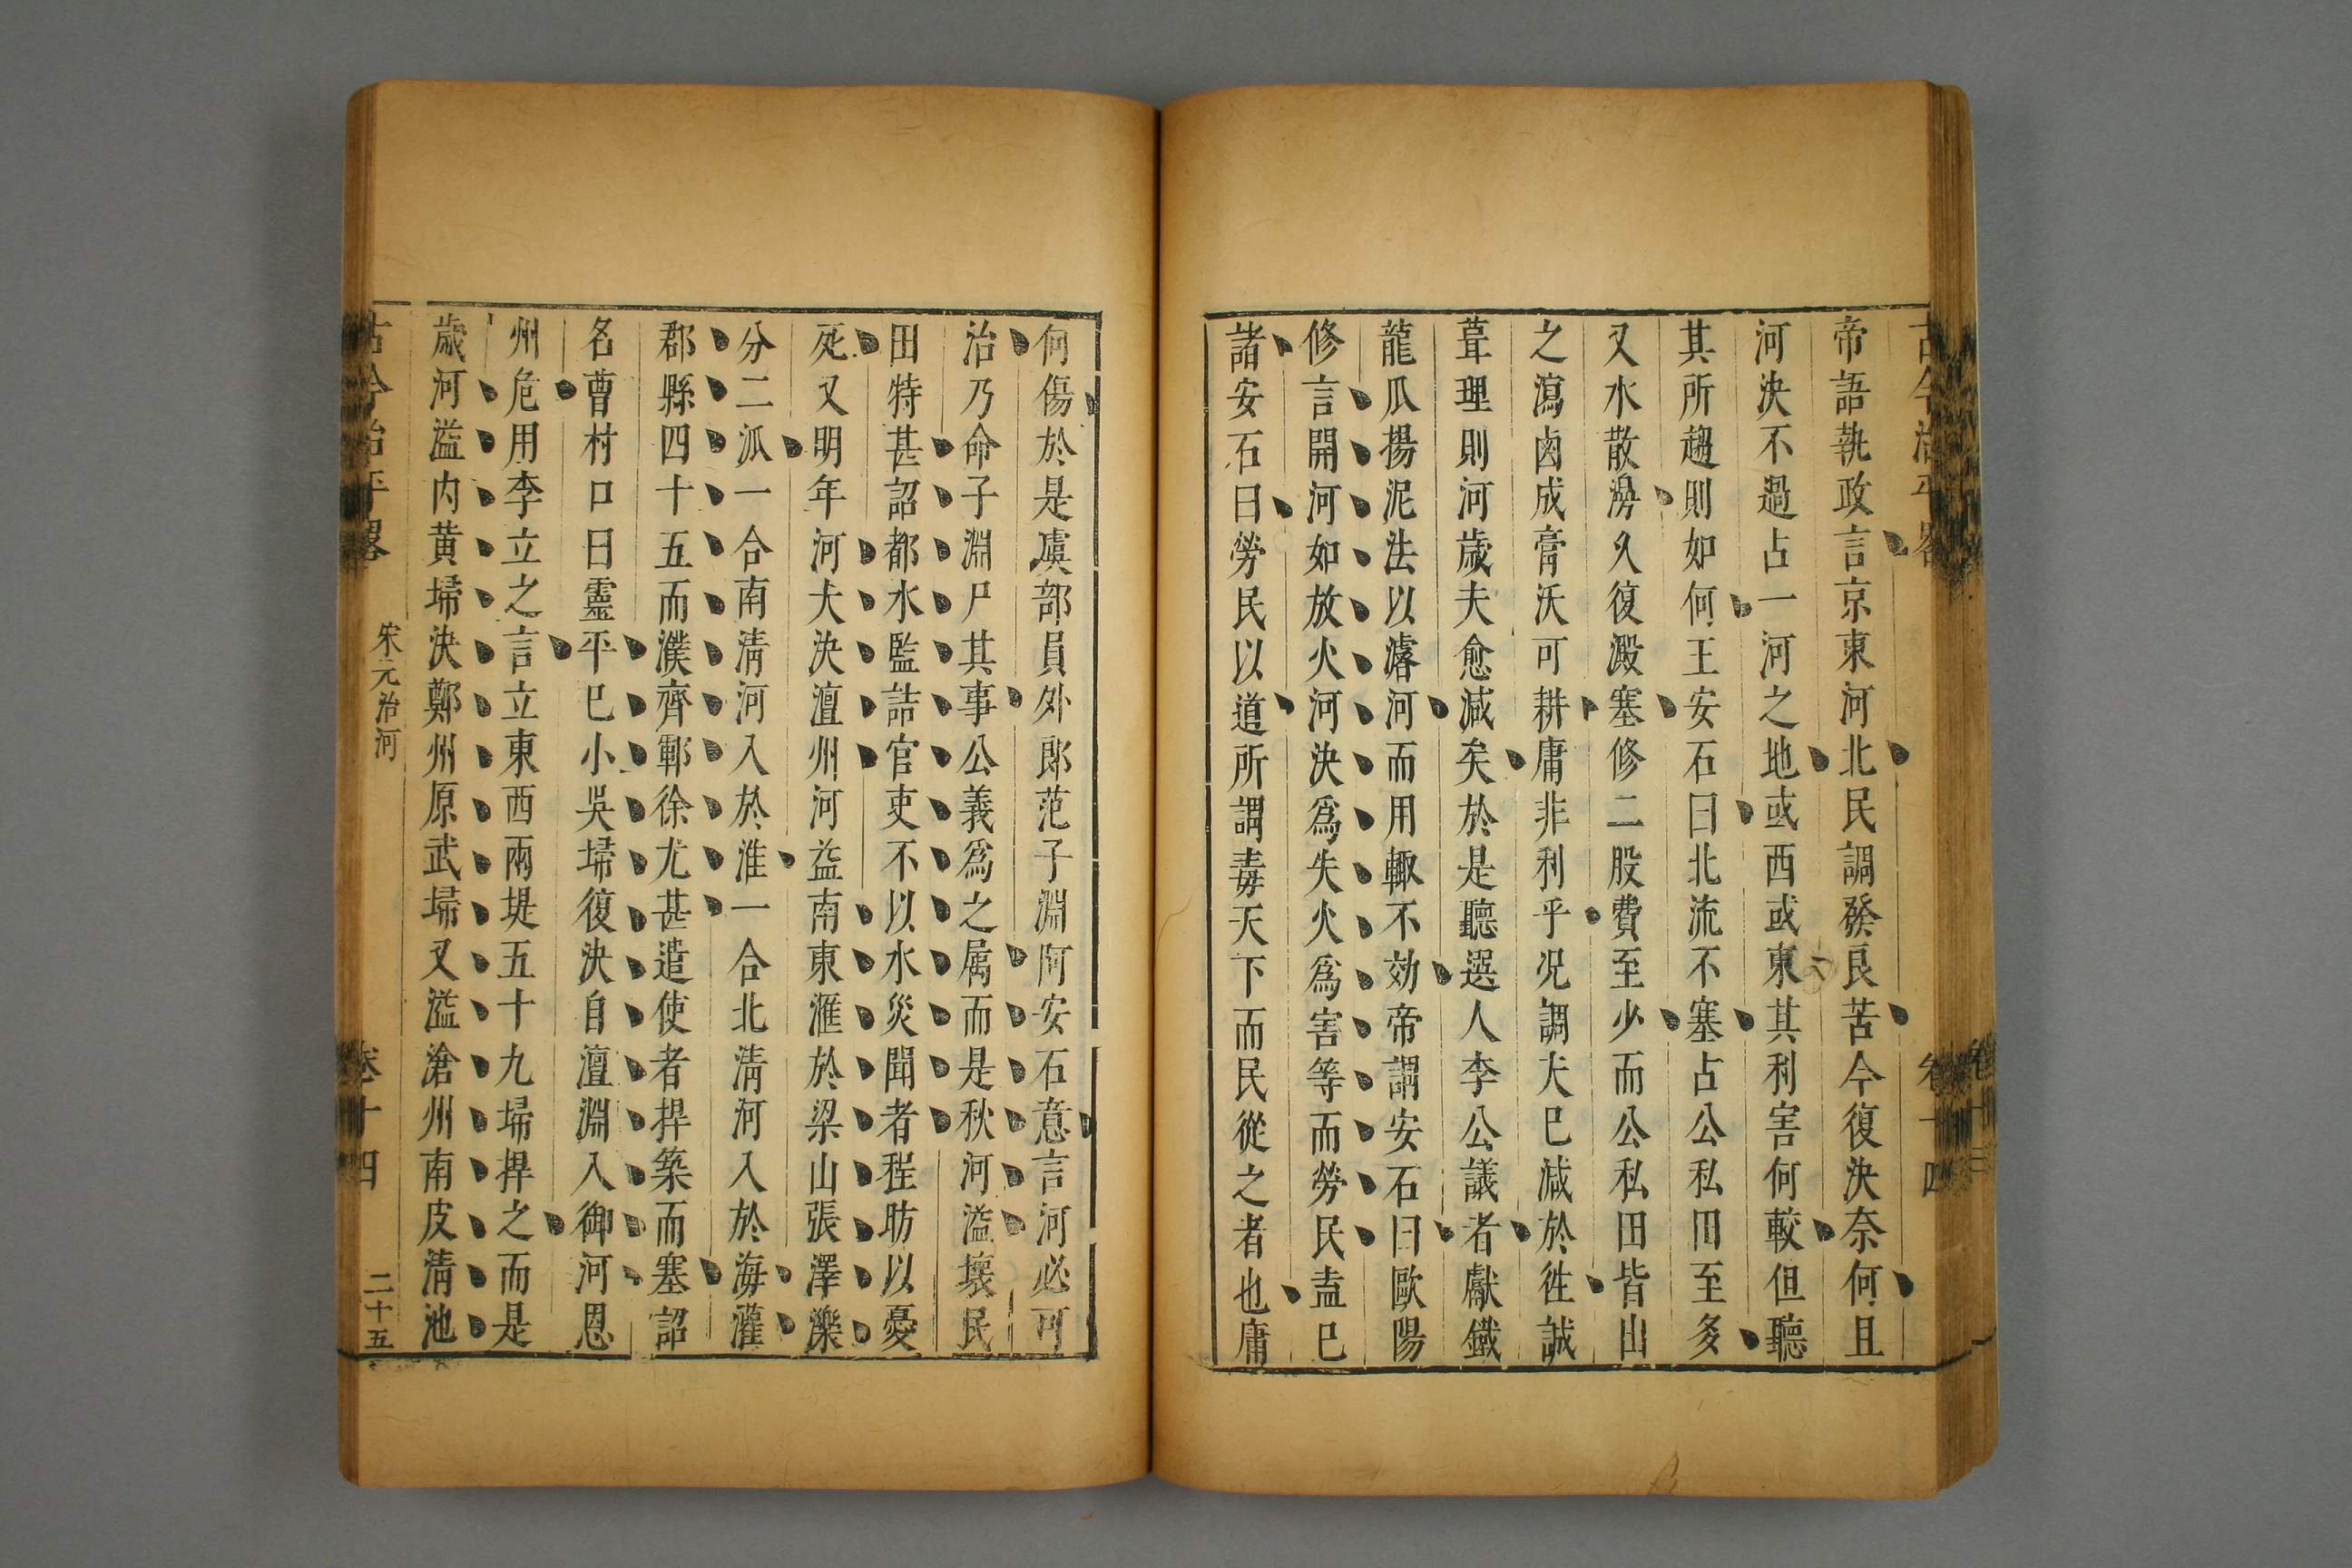 古今治平畧
卷十四
帝語執政言京東河北民調發良苦今復決奈何且
河決不過占一河之地或西或東其利害何較但聽
其所趨則如何王安石曰北流不塞占公私田至多
又水散漫久復澱塞修二股費至少而公私田皆出
之瀉鹵成膏沃可耕庸非利乎况調夫已減於徃誠
葺理則河歲夫愈減矣於是聽選人李公議者獻鐵
龍爪揚泥法以濬河而用輙不効帝謂安石曰歐陽
修言開河如放火河決爲失火爲害等而勞民盍已
諸安石曰勞民以道所謂毒天下而民從之者也庸
何傷於是虞部員外郎范子淵阿安石意言河必可
治乃命子淵尸其事公義爲之属而是秋河溢壞民
田特甚詔都水監詰官吏不以水災聞者程昉以憂
死又明年河大決澶州河益南東滙於梁山張澤濼
分二派一合南淸河入於淮一合北淸河入於海灌
郡縣四十五而濮齊鄆徐尤甚遣使者捍築而塞詔
名曹村口曰靈平已小吳埽復決自澶淵入御河恩
州危用李立之言立東西兩堤五十九埽捍之而是
歲河溢内黄埽決鄭州原武埽又溢滄州南皮淸池
古今治平畧
宋元治河
卷十四
二十五